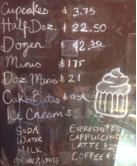 Cupcakes $ 3.75
Half Doz. $ 22.50
Dozen $ 42.50
Minis $ 1.75
Doz Minis $ 21
Cake Bites $
Ice Cream $
SODA
WATER
MILK
ESPRESSO $
CAPPUCCINO
LATTE $
COFFEE $